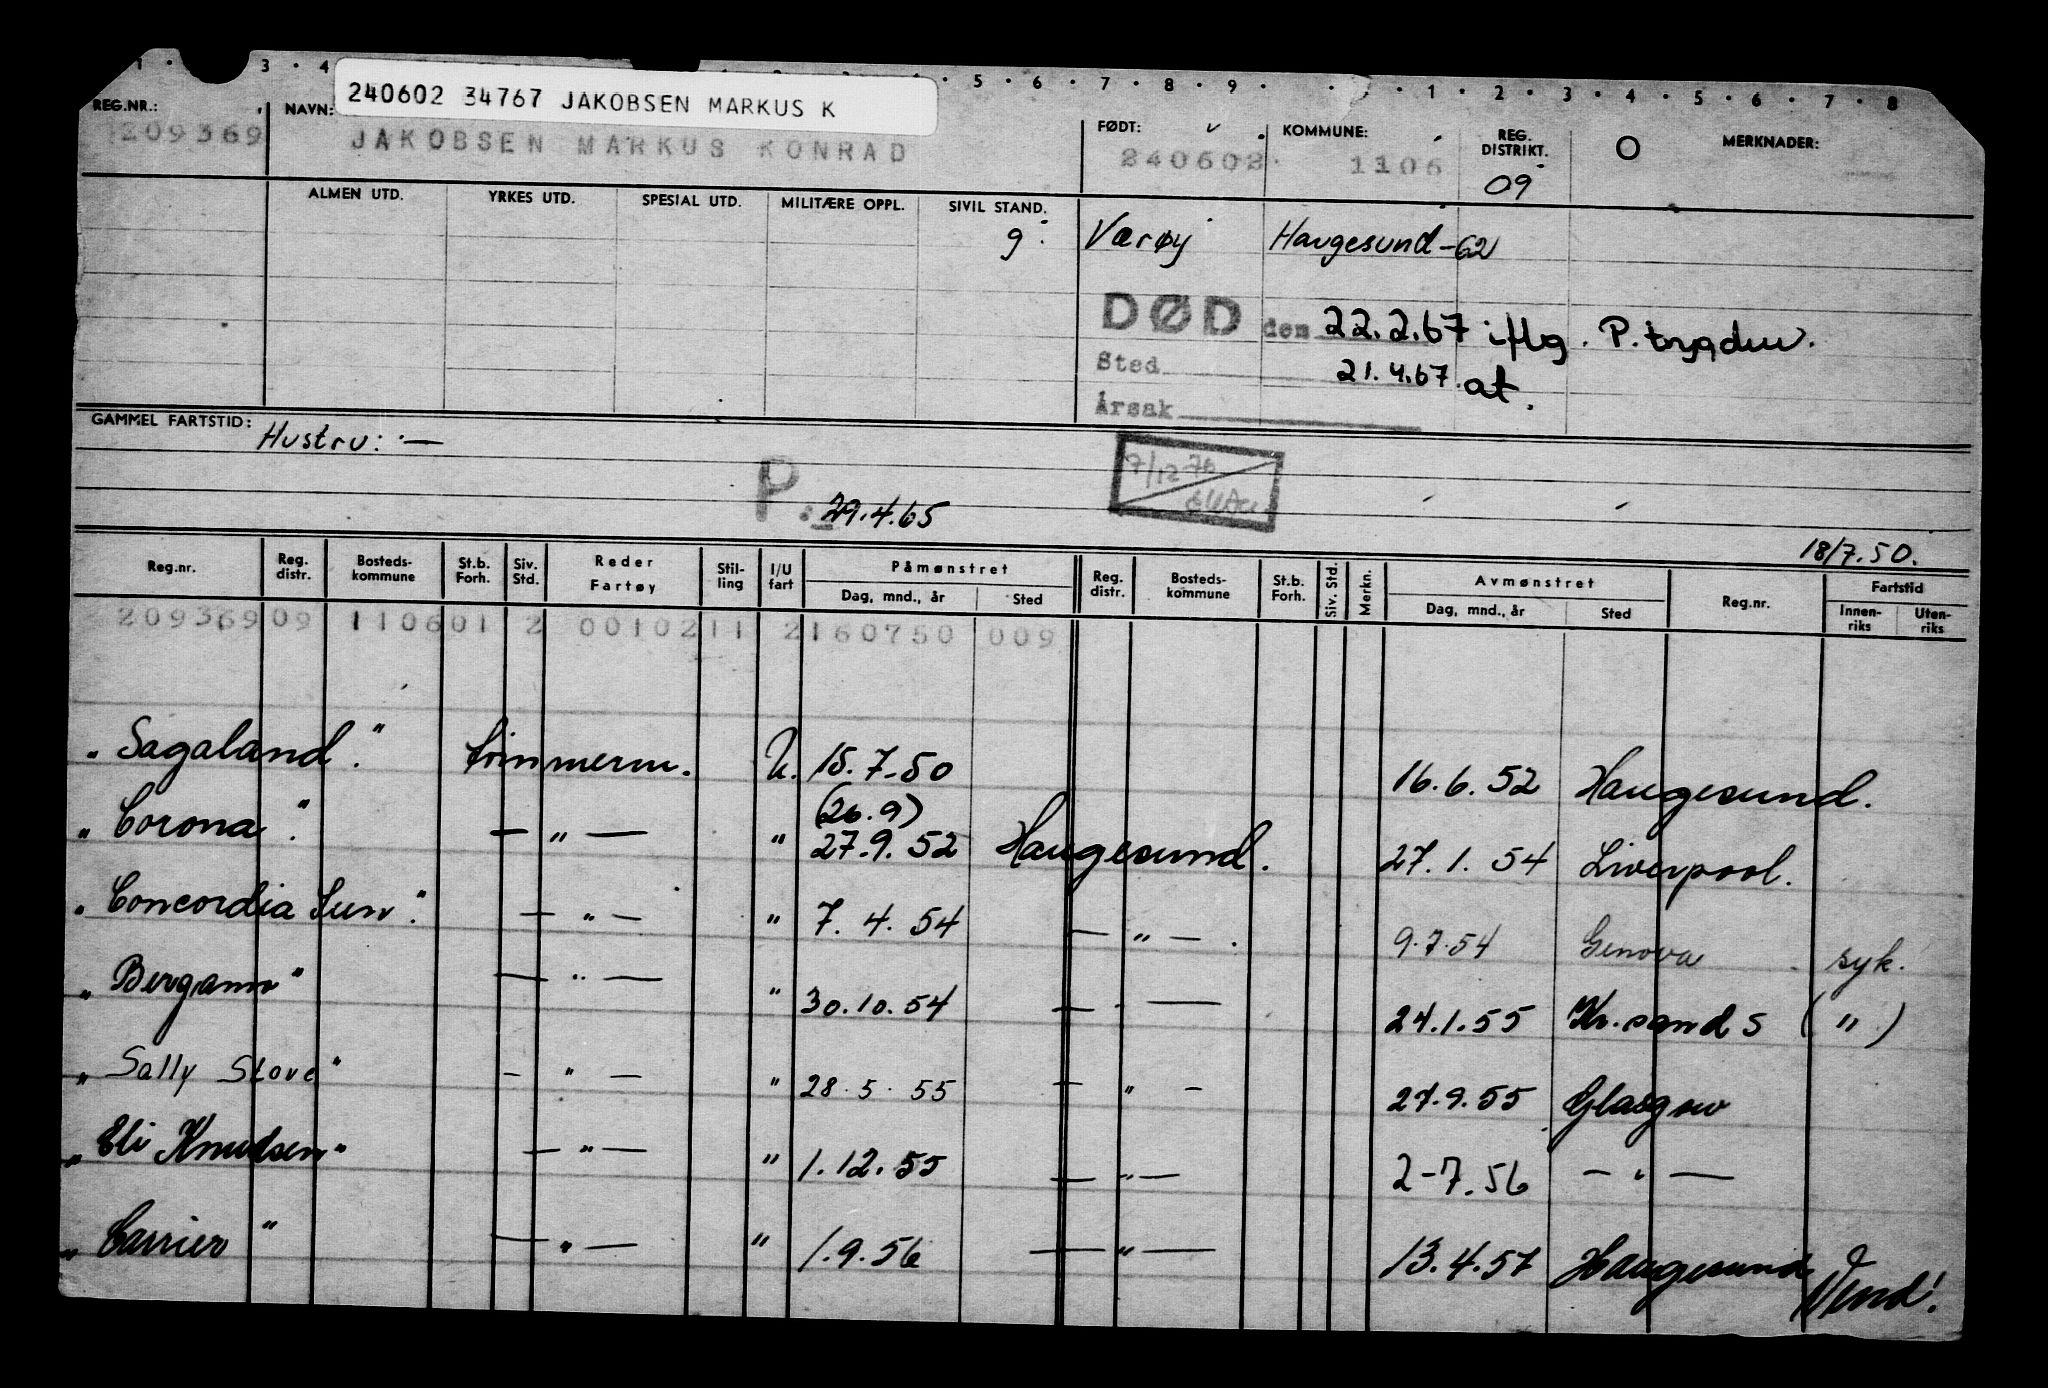 1 · 3 · 4 · 5 · 6 · 7 · 8 · 9 · · 1 · 2 · 3 · 4 · 5 · 6 · 7 · 8
240602 34767 JAKOBSEN MARKUS K
REG.NR.: NAVN: FØDT: KOMMUNE: REG. DISTRIKT. O MERKNADER:
209369 JAKOBSEN MARKUS KONRAD 240602 1106 09
ALMEN UTD. YRKES UTD. SPESIAL UTD. MILITÆRE OPPL. SIVIL STAND.
9 Værøy Haugesund -62
DØD den 22.2.67 iflg. P.trygden.
Sted 21.4.67. at.
Årsak
GAMMEL FARTSTID: Hustru: —
7/12 76
P. 29.4.65
18/7.50.
Reg.nr. Reg. distr. Bosteds-kommune St.b. Forh. Siv. Std. Reder Fartøy Stil-ling I/U fart Påmønstret Dag, mnd., år Sted Reg. distr. Bosteds-kommune St.b. Forh. Siv. Std. Merkn. Avmønstret Dag, mnd., år Sted Reg.nr. Fartstid Innen-riks Uten-riks
209369 09 1106 01 2 00102 11 2 160750 009
"Sagaland." tømmerm. U. 15.7.50 16.6.52 Haugesund.
(26.9)
"Corona". — " — " 27.9.52 Haugesund. 27.1.54 Liverpool.
"Concordia Sun". — " — " 7.4.54 — " — . 9.7.54 Genova syk.
"Bergamo" — " — " 30.10.54 — " — 24.1.55 Kr.sand S ( " )
"Sally Stove" — " — " 28.5.55 — " — 27.9.55 Glasgow
"Eli Knudsen" — " — " 1.12.55 — " — 2-7.56 — " —
"Carrier" — " — " 1.9.56 — " — 13.4.57 Haugesund Vend!